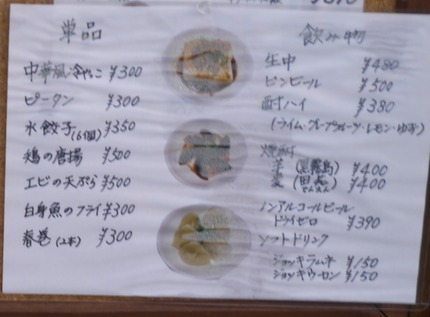 単品
中華風冷やっこ ¥300
ピータン ¥300
水餃子(6個) ¥350
鶏の唐揚 ¥500
エビの天ぷら ¥500
白身魚のフライ ¥300
春巻(2本) ¥300
飲み物
生中 ¥480
ビンビール ¥500
酎ハイ ¥380
(ライム・グレープフルーツ・レモン・ゆず)
焼酎
芋(黒霧島) ¥400
麦 ¥400
ノンアルコールビール
ドライゼロ ¥390
ソフトドリンク
ジョッキラムネ ¥150
ジョッキウーロン ¥150